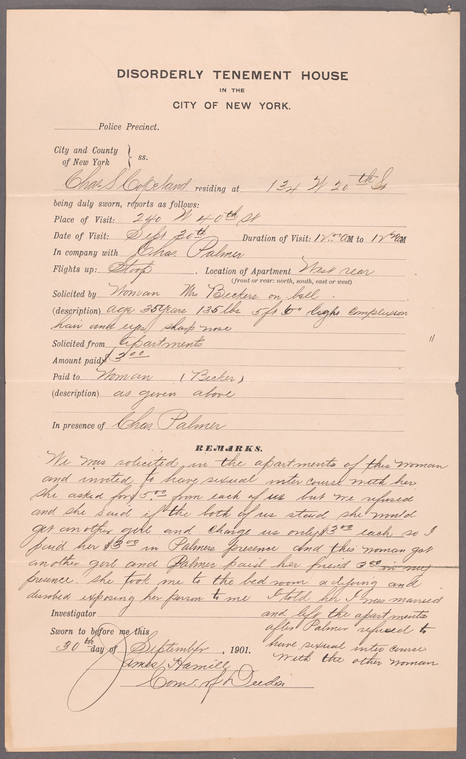 DISORDERLY TENEMENT HOUSE
IN THE
CITY OF NEW YORK.
Police Precinct.
City and County
of New York } ss.
Chas S Copeland residing at 134 W 20th St
being duly sworn, reports as follows:
Place of Visit: 240 W 40th St
Date of Visit: Sept 20th Duration of Visit: 12 AM to 12 AM
In company with Chas. Palmer
Flights up: Stoop Location of Apartment West rear
(front or rear: north, south, east or west)
Solicited by Woman Mrs Beckers on bell
(description) age 35 years 135 lbs 5 ft light complexion
hair and eyes sharp nose
Solicited from apartments
Amount paid $3.00
Paid to Woman (Becker)
(description) as given above
In presence of Chas Palmer
REMARKS.
We was solicited in the apartments of this woman
and invited to have sexual intercourse with her
she asked for $5.00 from each of us but we refused
and she said if the both of us stood she would
get another girl and charge us only $3.00 each so I
paid her $3.00 in Palmers presence and this woman got
another girl and Palmer paid her friend 3.00 in my
presence. She took me to the bed room adjoing and
exposing her person to me I told her I was married
and left the apartments
after Palmer refused to
have sexual inter course
with the other woman
Investigator
Sworn to before me this
30th day of September, 1901.
James Hamill
Com. of Deeds